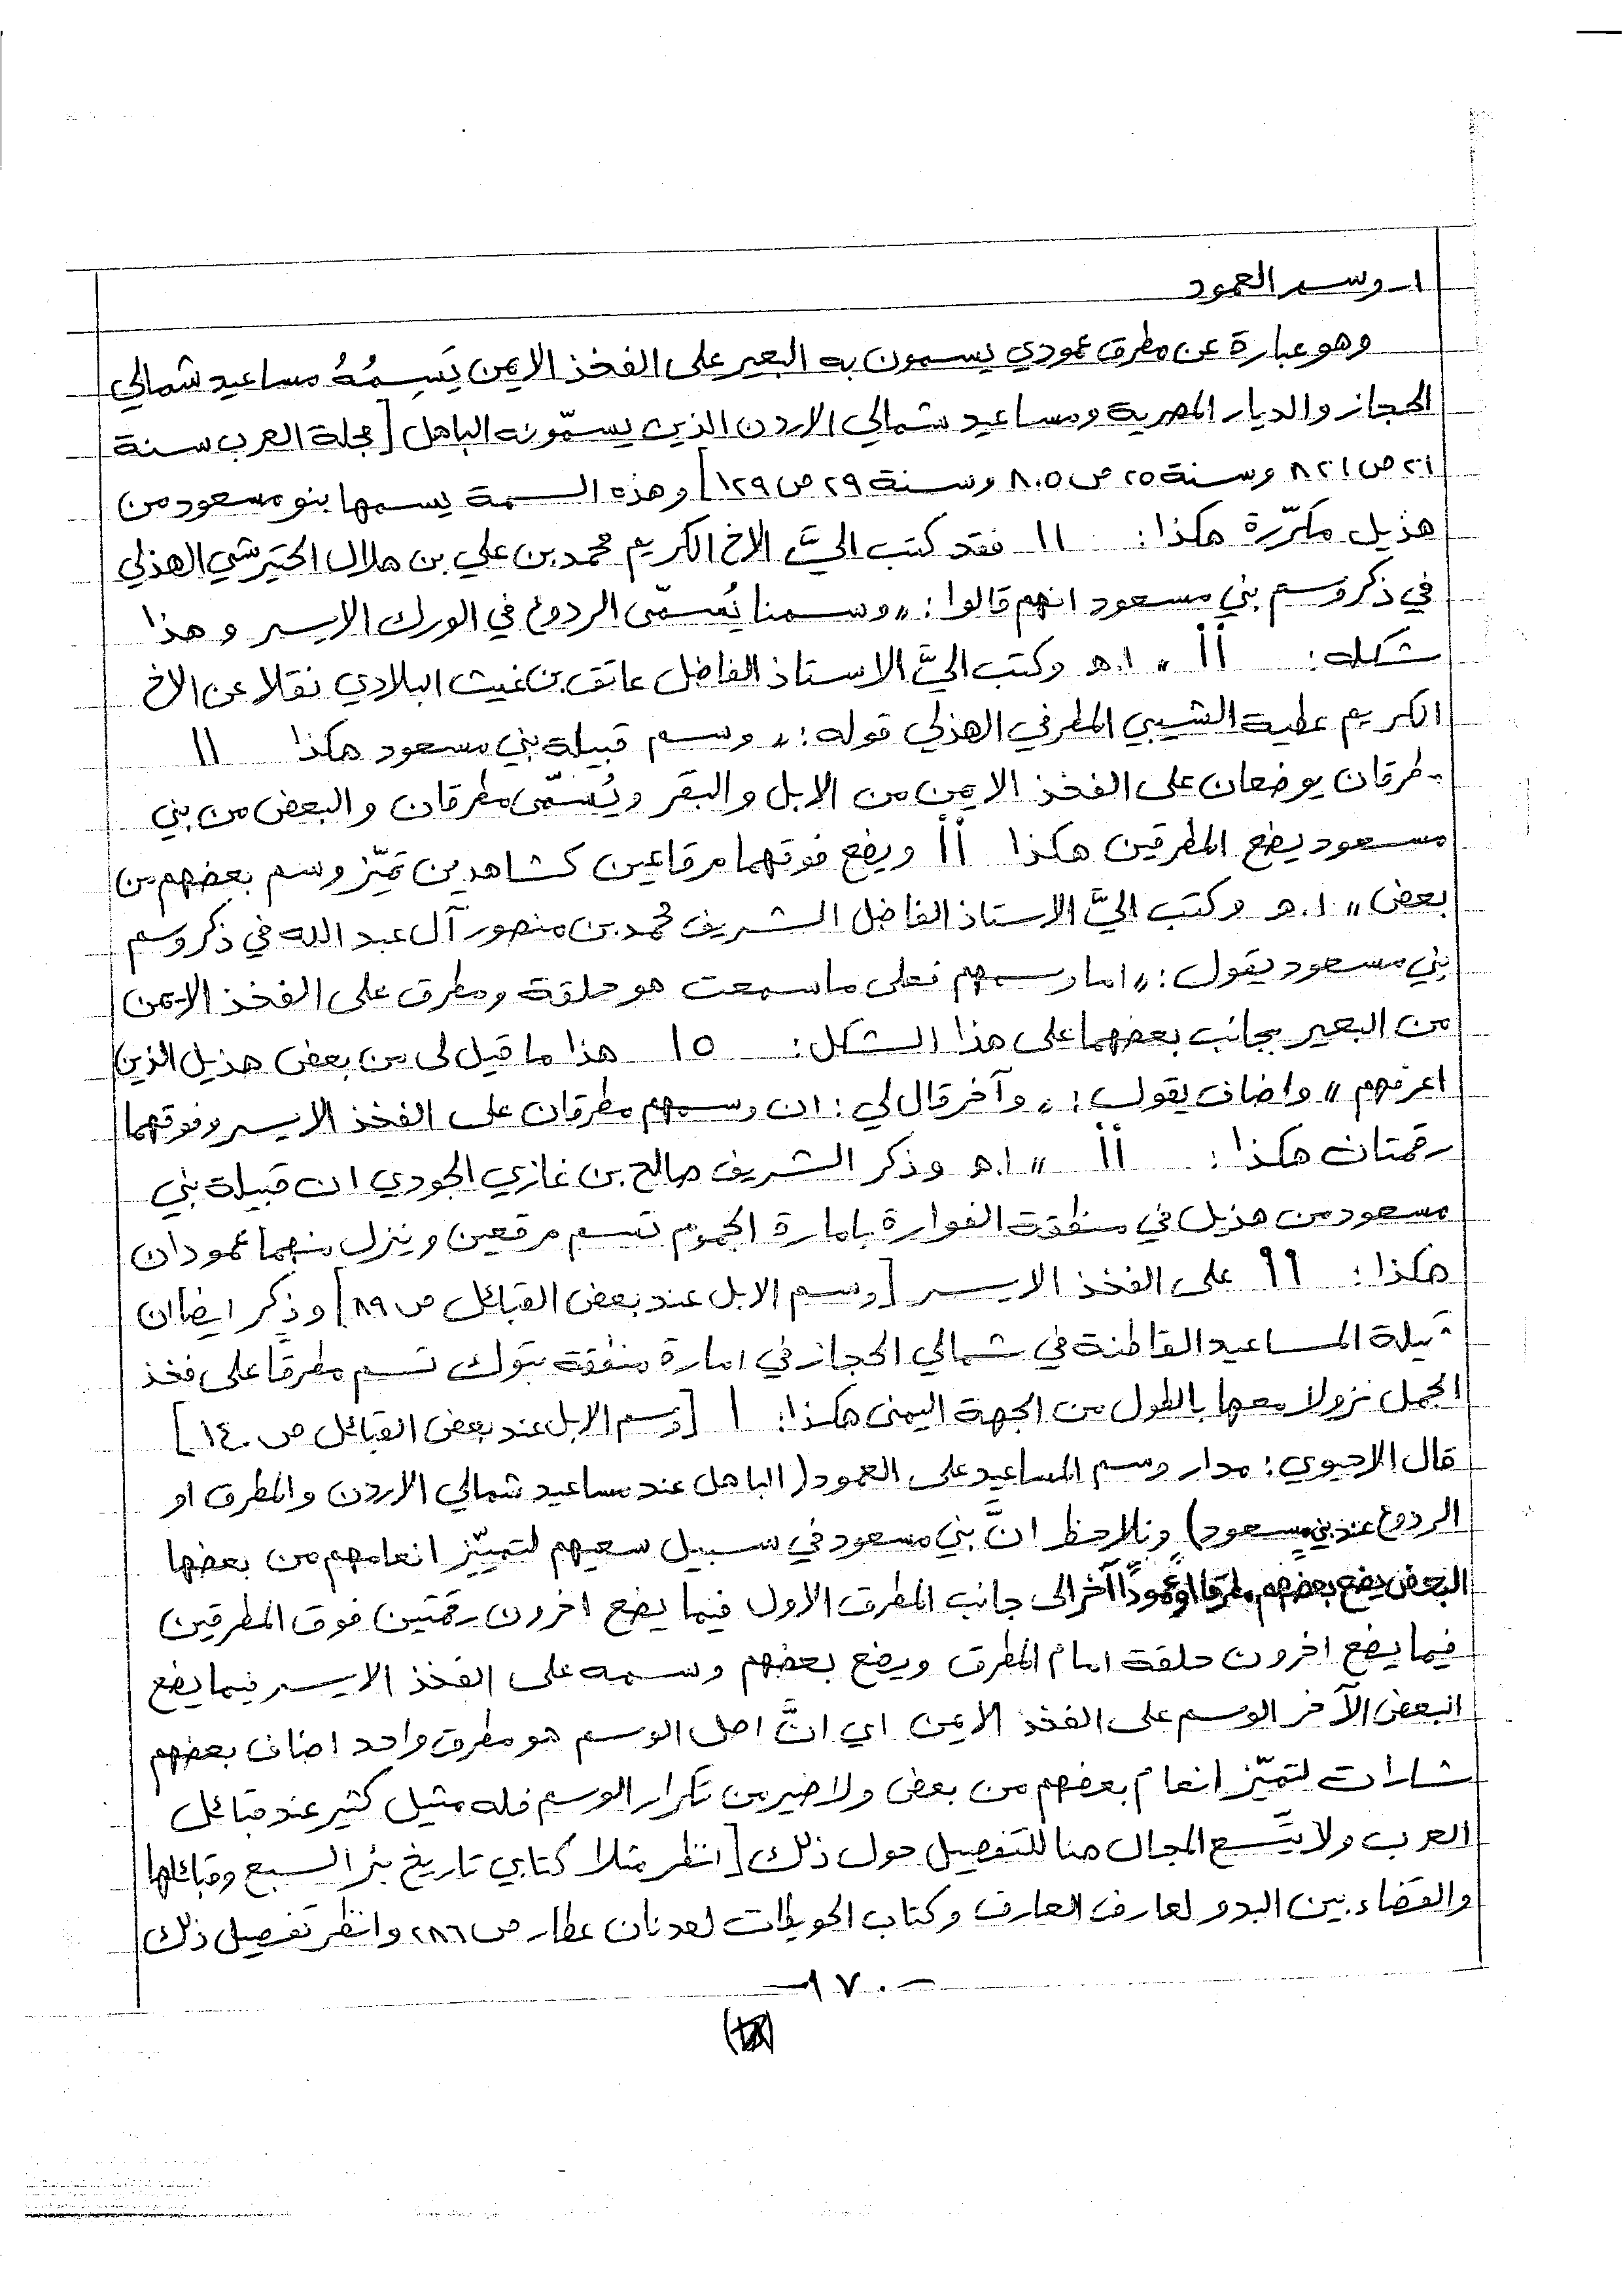 ١- وسم العمود
وهو عبارة عن مطرق عمودي يسمون به البعير على الفخذ الايمن يَسِمُهُ مساعيد شمالي
الحجاز والديار المصرية ومساعيد شمالي الاردن الذين يسمّونه الباهل [مجلة العرب سنة
٢١ ص ٨٢١ وسنة ٢٥ ص ٨٠٥ وسنة ٢٩ ص ١٢٩] وهذه السمة يسمها بنو مسعود من
هذيل مكرّرة هكذا: ١١ فقد كتب اليَّ الاخ الكريم محمد بن علي بن هلال الختيرشي الهذلي
في ذكر وسم بني مسعود انهم قالوا: "وسمنا يُسمّى الردوع في الورك الايسر وهذا
شكله: أأ" ا.هـ وكتب اليَّ الاستاذ الفاضل عاتق بن غيث البلادي نقلا عن الاخ
الكريم عطية الشيبي المطرفي الهذلي قوله: "وسم قبيلة بني مسعود هكذا ١١
مطرقان يوضعان على الفخذ الايمن من الابل والبقر ويُسمّى مطرقان والبعض من بني
مسعود يضع المطرقين هكذا أأ ويضع فوقهما مرقاعين كشاهدين تميّز وسم بعضهم من
بعض" ا.هـ وكتب اليَّ الاستاذ الفاضل الشريف محمد بن منصور آل عبد الله في ذكر وسم
بني مسعود يقول: "اما وسمهم فعلى ما سمعت هو حلقة ومطرق على الفخذ الايمن
من البعير بجانب بعضهما على هذا الشكل: ١٥ هذا ما قيل لي من بعض هذيل الذين
اعرفهم" واضاف يقول: "وآخر قال لي: ان وسمهم مطرقان على الفخذ الايسر وفوقهما
رقمتان هكذا: أأ" ا.هـ وذكر الشريف صالح بن غازي الجودي ان قبيلة بني
مسعود من هذيل في منطقة الفوارة بامارة الجموم تسم مرقعين وينزل منهما عمودان
هكذا: ٩٩ على الفخذ الايسر [وسم الابل عند بعض القبائل ص ٨٩] وذكر ايضا ان
قبيلة المساعيد القاطنة في شمالي الحجاز في امارة منطقة تبوك تسم مطرقًا على فخذ
الجمل نزولا معها بالطول من الجهة اليمنى هكذا: ا [وسم الابل عند بعض القبائل ص ١٤٠]
قال الاحيوي: مدار وسم المساعيد على العمود (الباهل عند مساعيد شمالي الاردن والمطرق او
الردوع عند بني مسعود) ونلاحظ انَّ بني مسعود في سبيل سعيهم لتمييّز انعامهم من بعضها
البعض يضع بعضهم مطرقا او عمودًا آخر الى جانب المطرق الاول فيما يضع اخرون رقمتين فوق المطرقين
فيما يضع اخرون حلقة امام المطرق ويضع بعضهم وسمه على الفخذ الايسر فيما يضع
البعض الآخر الوسم على الفخذ الايمن اي انَّ اصل الوسم هو مطرق واحد اضاف بعضهم
شارات لتميّز انعام بعضهم من بعض ولا ضير من تكرار الوسم فله مثيل كثير عند قبائل
العرب ولا يتّسع المجال هنا للتفصيل حول ذلك [انظر مثلا كتابي تاريخ بئر السبع وقبائلها
والقضاء بين البدو لعارف العارف وكتاب الحويطات لعدنان عطار ص ٢٨٦ وانظر تفصيل ذلك
-١٧٠-